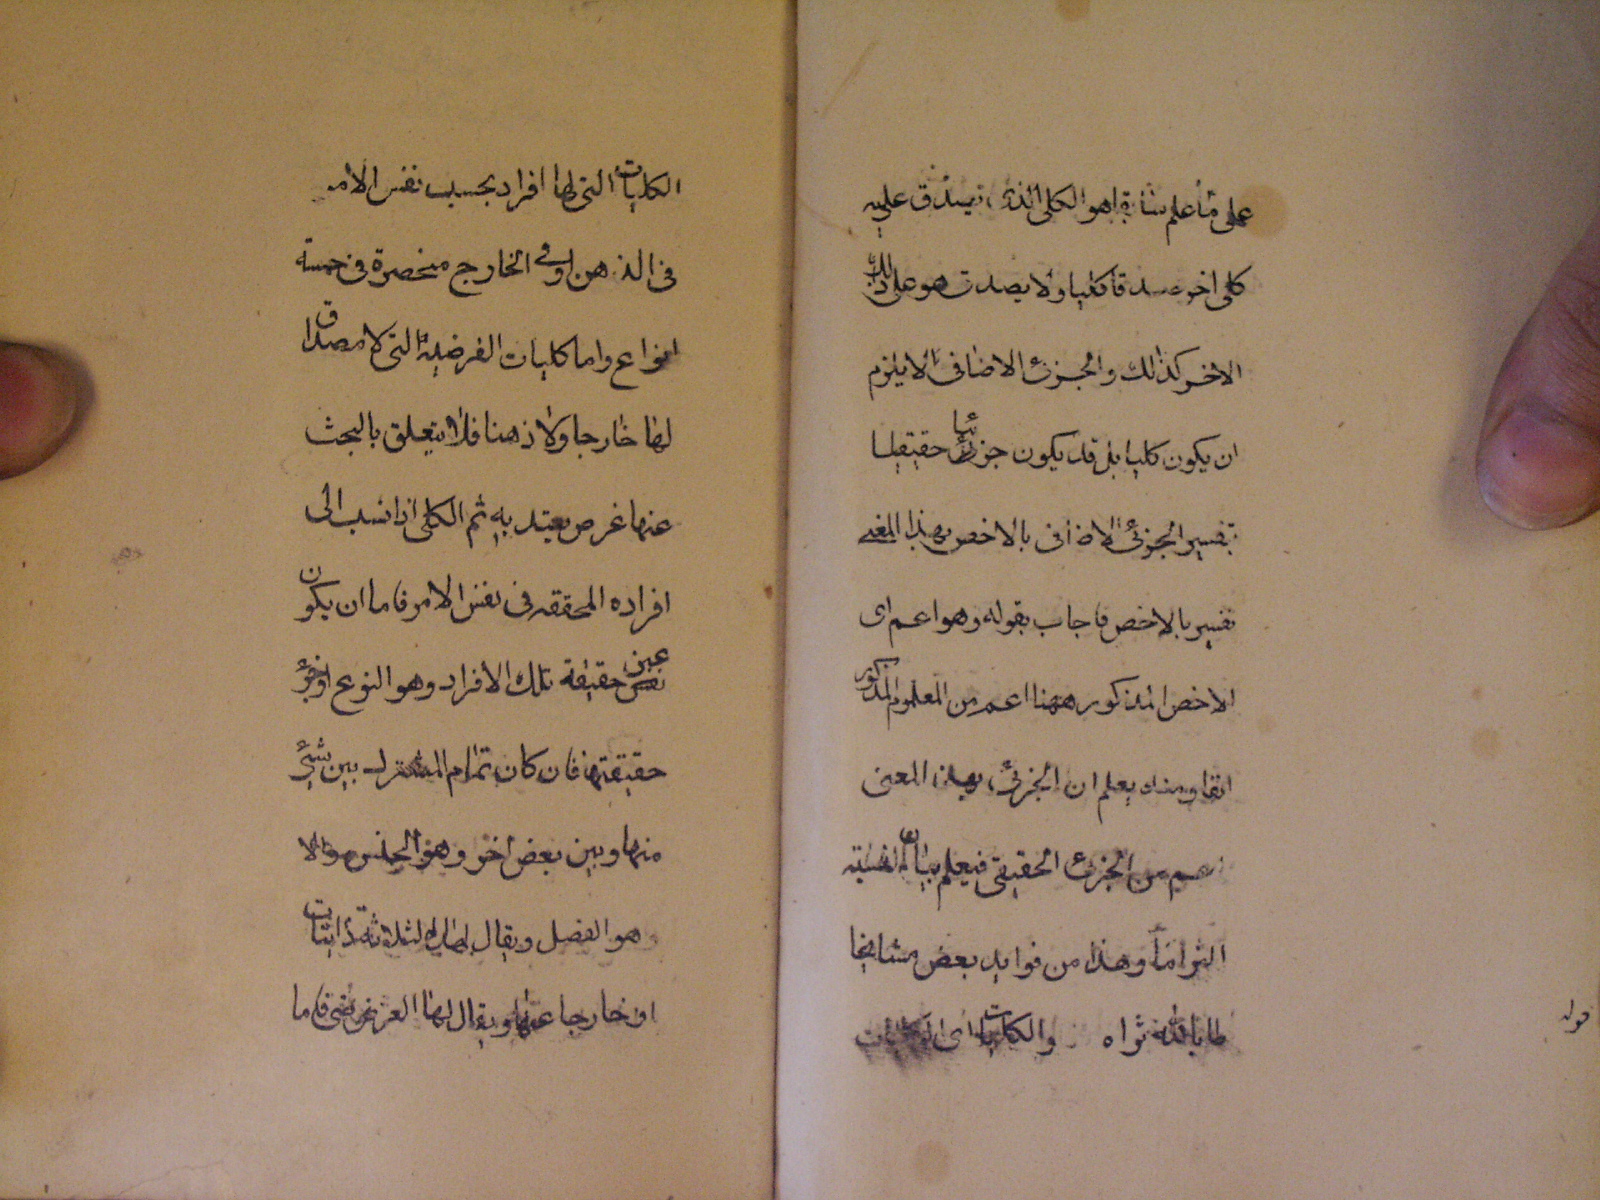 على ما علم سابقا هو الكلى الذى يصدق عليه
كلى اخر صدقا كليا ولا يصدق هو على ذلك
الاخر كذالك والجزئ الاضافى لا يلزم
ان يكون كليا بل قد يكون جزئيا حقيقيا
تفسير الجزئى الاضافى بالاخص بهذا المعنى
تفسير بالاخص فاجاب بقوله وهو اعم اى
الاخص المذكور ههنا اعم من المعلوم المذكور
انفا ومنه يعلم ان الجزئى بهذا المعنى
اعم من الجزئ الحقيقى فيعلم بيان النسبة
التزاما وهذا من فوايد بعض مشايخنا
طاب الله ثراه والكليات اى الكليات
قوله
الكليات التى لها افراد بحسب نفس الامر
فى الذهن او فى الخارج منحصرة فى خمسة
انواع واما كليات الفرضية التى لا مصداق
لها خارجا ولا ذهنا فلا يتعلق بالبحث
عنها غرض يعتد به ثم الكلى اذا نسب الى
افراده المحققه فى نفس الامر فاما ان يكون
عين حقيقة تلك الافراد وهو النوع او جزؤ
حقيقتها فان كان تمام المشترك بين شيئ
منها وبين بعض اخر وهو الجنس والا
هو الفصل ويقال لهذه الثلاثة ذاتيات
او خارجا عنها ويقال لها العرضى فاما